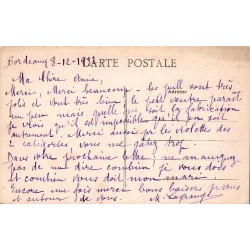 Bordeaux 8-12-1932 CARTE POSTALE
Ma Chère amie, Adresse
Merci, Merci beaucoup - les pulls sont très
jolis et vont très bien. le petit ventre paraît
un peu mais quelle que soit la fabrication
je crois qu'il est impossible qu'il en soit
autrement. Merci aussi pr les violettes des
2 catégories, vous me gâtez trop.
Dans votre prochaine lettre, ne manquez
pas de me dire combien je vous dois
et combien vous doit mon mari.
Encore une fois merci bons baisers pr vous
et autour de vous. M. Lagrange